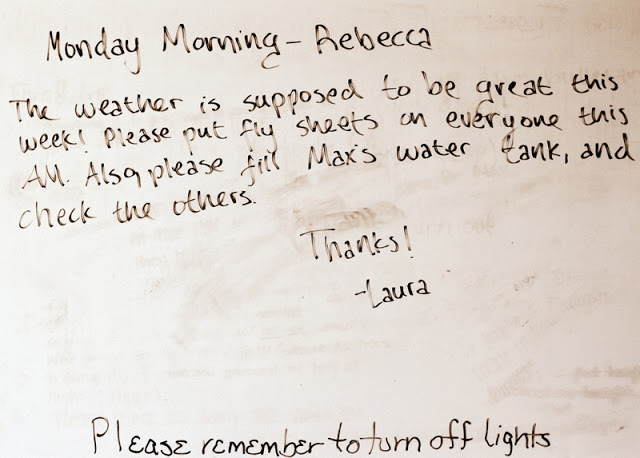 Monday Morning - Rebecca
The weather is supposed to be great this
week! Please put fly sheets on everyone this
AM. Also please fill Max's water tank, and
check the others.
Thanks!
-Laura
Please remember to turn off lights